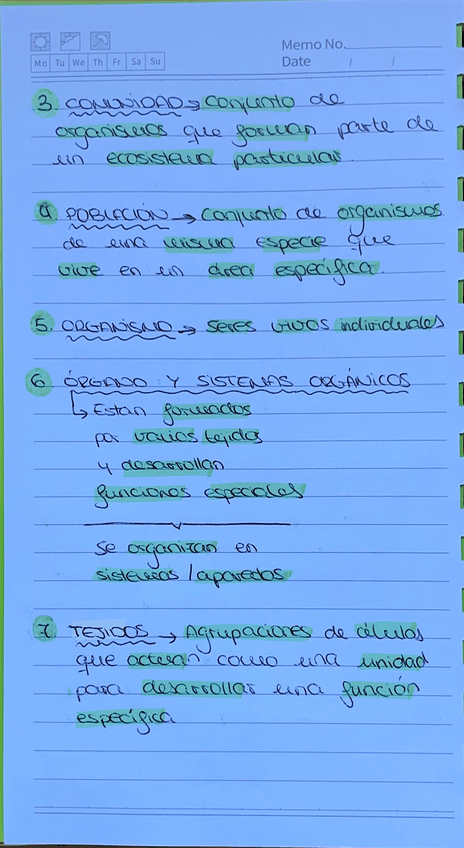 Memo No.
Mo Tu We Th Fr Sa Su
Date / /
3. COMUNIDAD → Conjunto de
organismos que forman parte de
un ecosistema particular.
4. POBLACIÓN → Conjunto de organismos
de una misma especie que
vive en un área específica.
5. ORGANISMO → Seres vivos individuales
6. ÓRGANO Y SISTEMAS ORGÁNICOS
↳ Estan formados
por varios tejidos
y desarrollan
funciones especiales
Se organizan en
sistemas / aparatos.
7. TEJIDOS → Agrupaciones de células
que actuan como una unidad
para desarrollar una función
específica